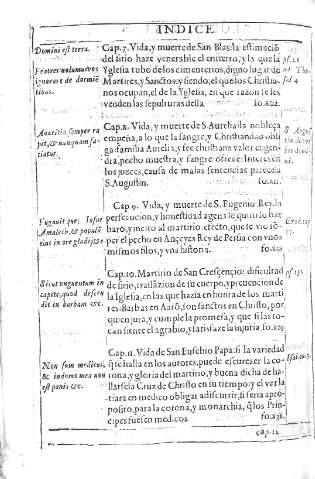 INDICE
Domini est terra.
Fratres nolumus vos
ignorare de dormiẽ
tibus.
Cap.7. Vida, y muerte de San Blas, la estimaciõ
del sitio haze venerable el entierro, y la que la
Yglesia tubo de los cimenterios, digno lugar de
Martires, y Sanctos, y siendo, el que los Christia-
nos ocupan, el de la Yglesia, en que razon se les
venden las sepulturas della. fo.202.
Avaritia semper ra
pit, & nunquam sa-
tiatur.
Cap.8. Vida, y muerte de S. Aurelia, la nobleça
empeña, a lo que la sangre, y Christiandad obli-
ga, familia Aurelia, y fee christiana valor engen-
dra, pecho muestra, y sangre ofrece: Interes en
los jueces, causa de malas sentencias parecela
S. Augustin.
S. Augus
Fugavit que Iosue
Amalech, & popul
eius in ore gladij &c.
Cap.9. Vida, y muerte de S. Eugenio Rey. la
persecucion, y honestidad agena le quito lo har
baro, y incito al martirio efecto, que se vio
por el pecho en Ançeyes Rey de Persia con vnos
mismos filos, y vna historia. fo.212
Exod.17.
Sicut unguentum in
capite, quod descen
dit in barbam &c.
Cap.10. Martirio de San Crescencio: dificultad
de sitio, traslazion de su cuerpo, y precucion de
la Iglesia, en las que hazia en honra de los marti
res: Barbas en Aarõ, son sanctos en Christo, por
quien jura, y cumple la promesa, y que si las to-
can siente el agrabio, y satisfaze la injuria. fo.229
ps. 132
Non sum medicus,
& in domo mea non
est panis &c.
Cap.11. Vida de San Eusebio Papa: si la variedad
q̃ se halla en los autores, puede escurezer la co
rona, y gloria del martirio, y buena dicha de ha-
llarse la Cruz de Christo en su tiempo: y el verla
tiara en medico obliga a discurrir, si seria apro-
posito, para la corona, y monarchia, q̃ los Prin-
cipes fuesen medicos fo.238.
Isai. 3.
Cap.12